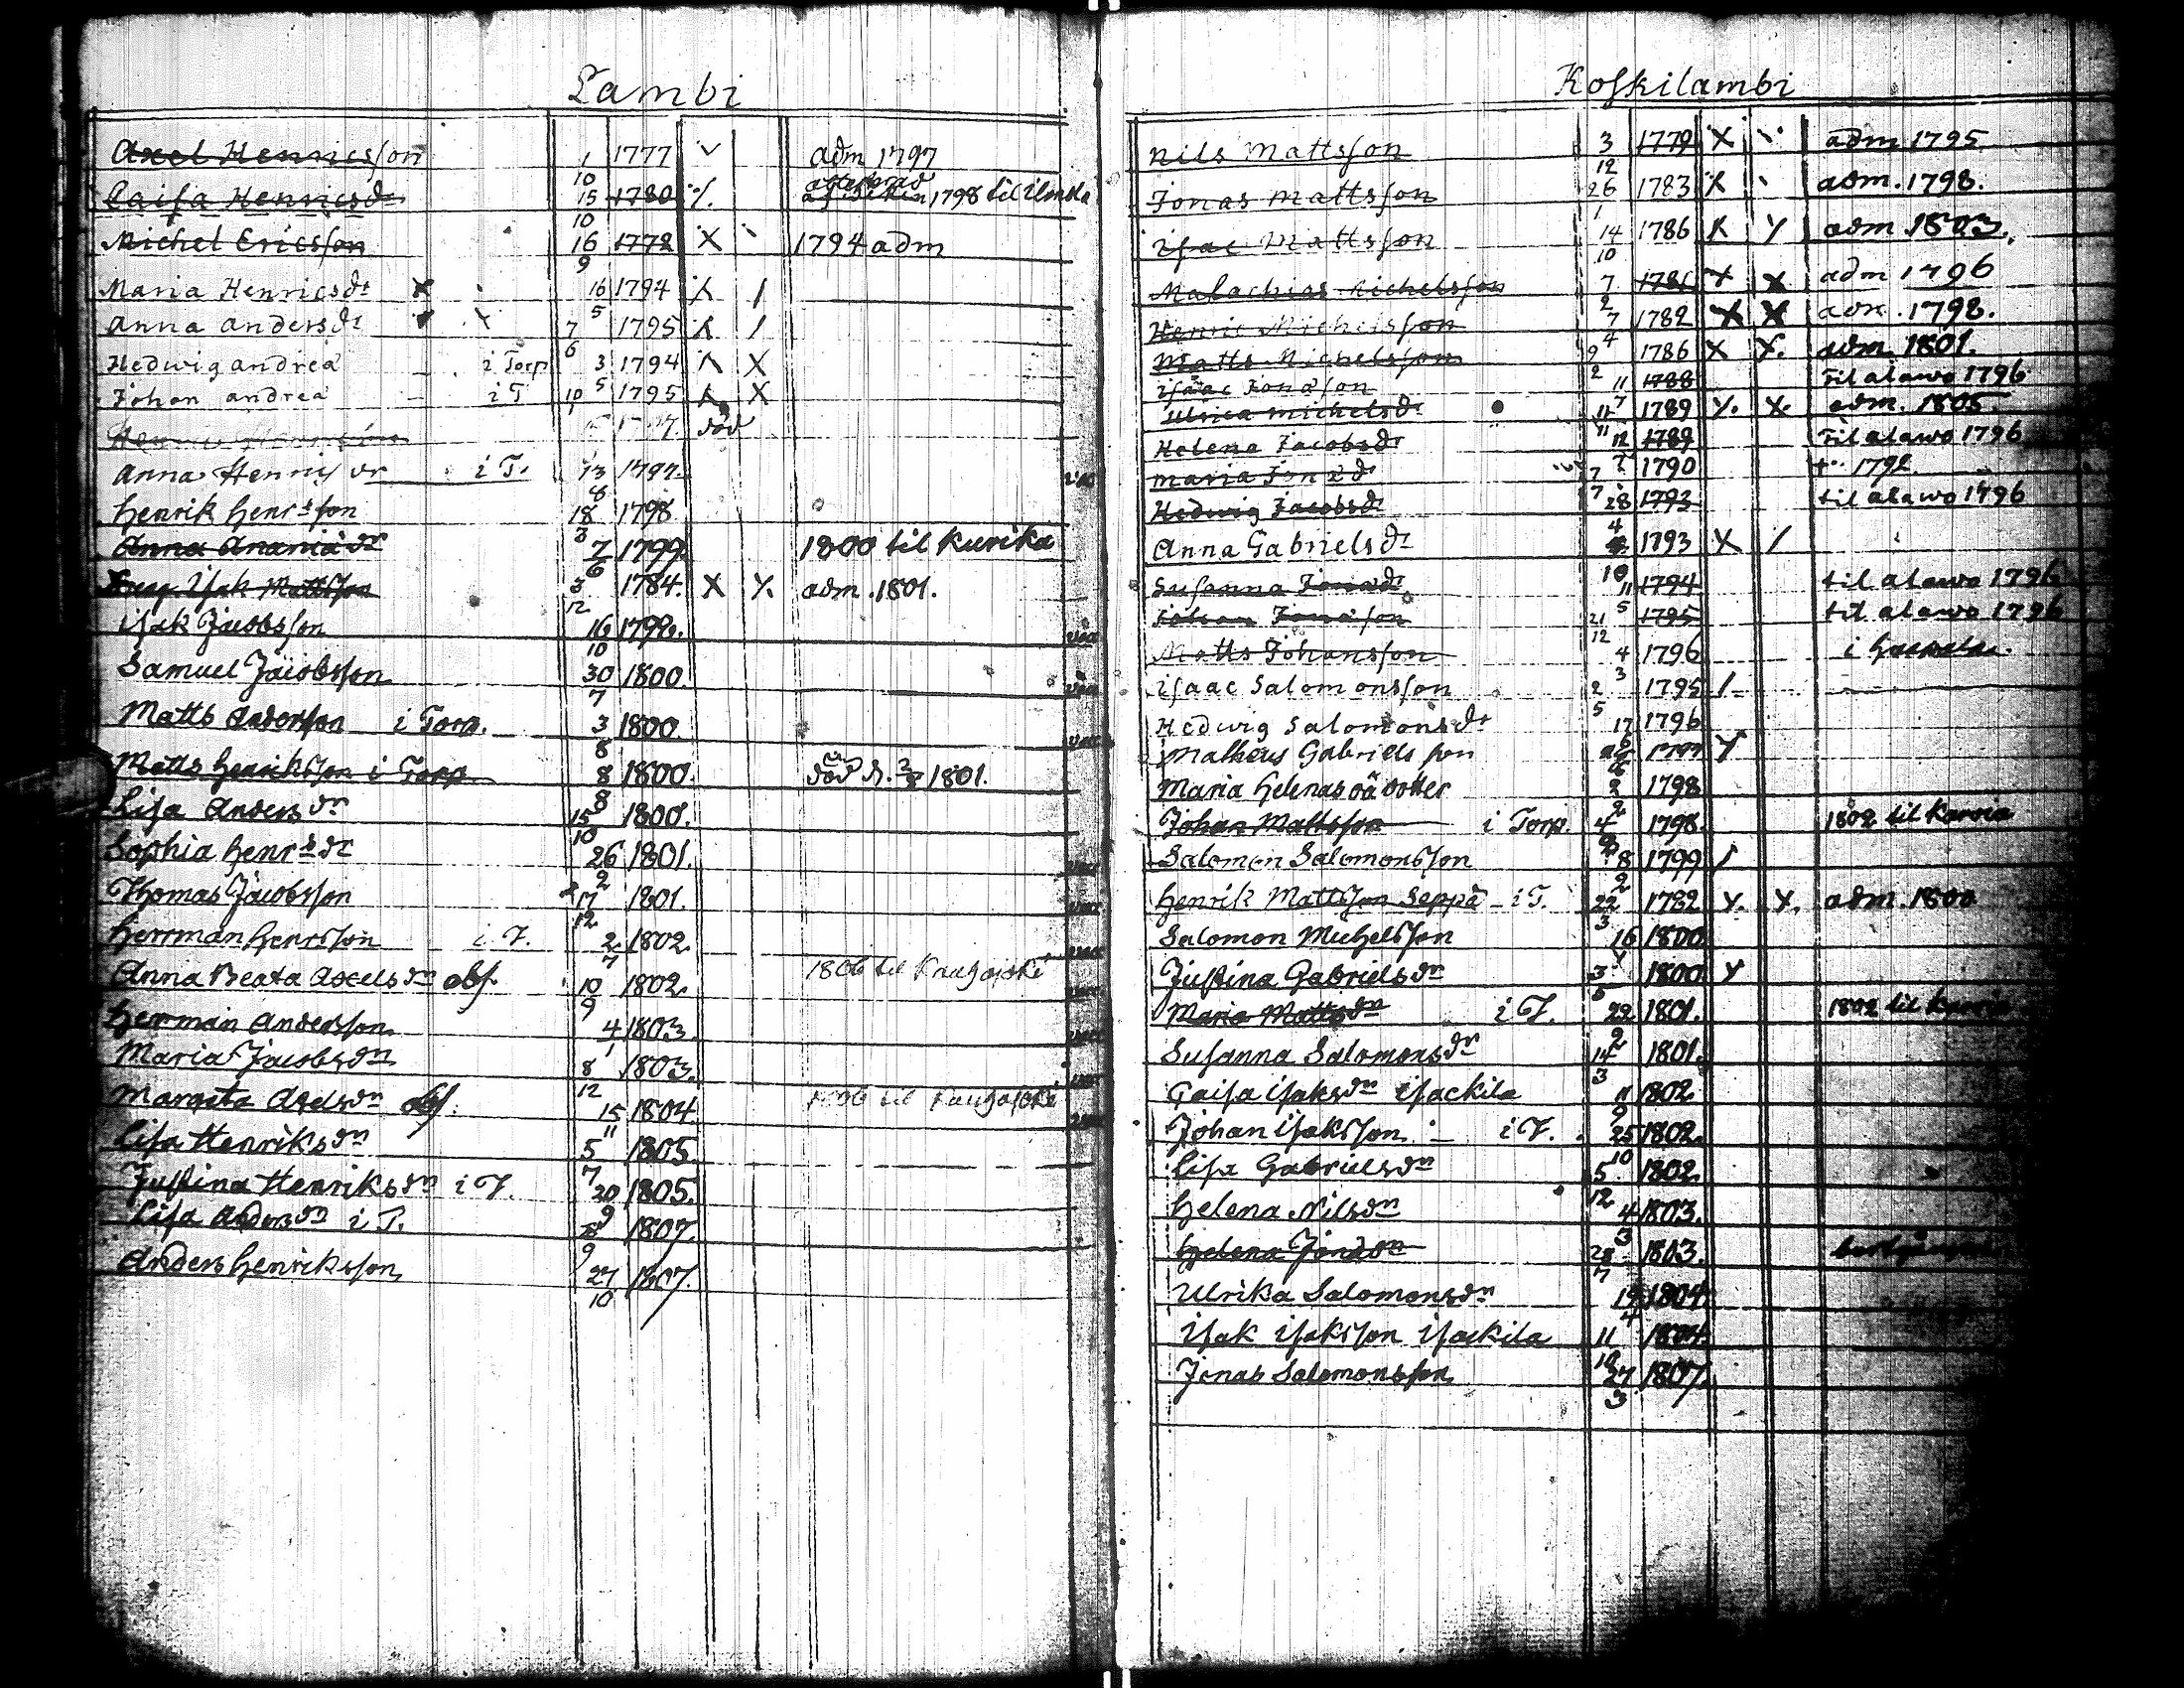 Lambi
Axel Henricsson 1/10 1777 adm 1797
Caisa Henricsdr 15/10 1780 1798 til ilmola
Michel Ericsson 16/9 1772 X 1794 adm
Maria Henricsdr 16/5 1794
Anna andersdr 7/6 1795
Hedwig andreä i Torp 3/5 1794 X
Johan andreä i T 10/1 1795 X
död
Anna i T. 13/8 1797
Henrik Henrsson 18/3 1798
Anna Ananiä dr 7/6 1799 1800 til Kurika
Isak Mattsson 3/12 1784. X X. adm. 1801.
isak Jacobsson 16/10 1799.
Samuel Jacobsson 30/7 1800.
Matts Andersson i Torp. 3/8 1800
Matts Henriksson i Torp 8/8 1800. död d. 1801.
Lisa Andersdr 15/10 1800.
Sophia Henrsdr 26/2 1801.
Thomas Jacobsson 17/12 1801.
Herrman Henrsson i T. 2/7 1802.
Anna Beata Axelsdr obs. 10/9 1802. 1806 til Kauhajoki
Herrman Andersson 4/1 1803.
Maria Jacobsdr 8/12 1803.
Margeta Axelsdr obs. 15/11 1804. 1806 til Kauhajoki
Lisa Henriksdr 5/7 1805.
Justina Henriksdr i T. 20/9 1805.
Lisa Andersdr i T. 1807.
Anders Henriksson 27/10 1807.
Koskilambi
Nils Mattsson 3/12 1779 X adm 1795
Jonas Mattsson 26/1 1783 X adm. 1798.
Isac Mattsson 14/10 1786 X adm. 1803.
Malachias Michelsson 7/2 1781 X X adm 1796
Henric Michelsson 7/4 1782 X X adm. 1798.
Matts Michelsson 9/2 1786 X X. adm. 1801.
isaac Jonäson 11/7 1788 til alawo 1796
Ulrica Michelsdr 1789 X. X. adm. 1805.
Helena Jacobsdr 12/7 1789 til alawo 1796
Maria Jonädr 7/7 1790 1792
Hedwig Jacobsdr 28/4 1793 til alawo 1796
Anna Gabrielsdr 1793 X /
Susanna Jonädr 11/5 1794 til alawo 1796
Johan Jonäson 21/12 1795 til alawo 1796
Matts Johansson 4/3 1796
isaac Salomonsson 2/5 1795 /
Hedwig Salomonsdr 17 1796
Matheus Gabrielsson 1797
Maria Helenas oä dotter 2/2 1798
Johan Mattsson i Torp. 4 1798. 1802 til Karvia
Salomon Salomonsson 8/9 1799 /
Henrik Mattsson Seppä i T. 22/3 1782 X. X. adm. 1800
Salomon Michelsson 16 1800
Justina Gabrielsdr 3/5 1800
Maria Mattsdr i T. 22/9 1801. 1802 til Karvia
Susanna Salomonsdr 14/3 1801.
Caisa Isaksdr isackila 11/9 1802
Johan Isaksson i T. 25/10 1802.
Lisa Gabrielsdr 5/12 1802.
Helena Nilsdr 4/3 1803.
Helena Jonädr 28/7 1803.
Ulrika Salomonsdr 19/4 1804.
Isak Isaksson Isackila 11/10 1804.
Jonas Salomonsson 27/3 1807.